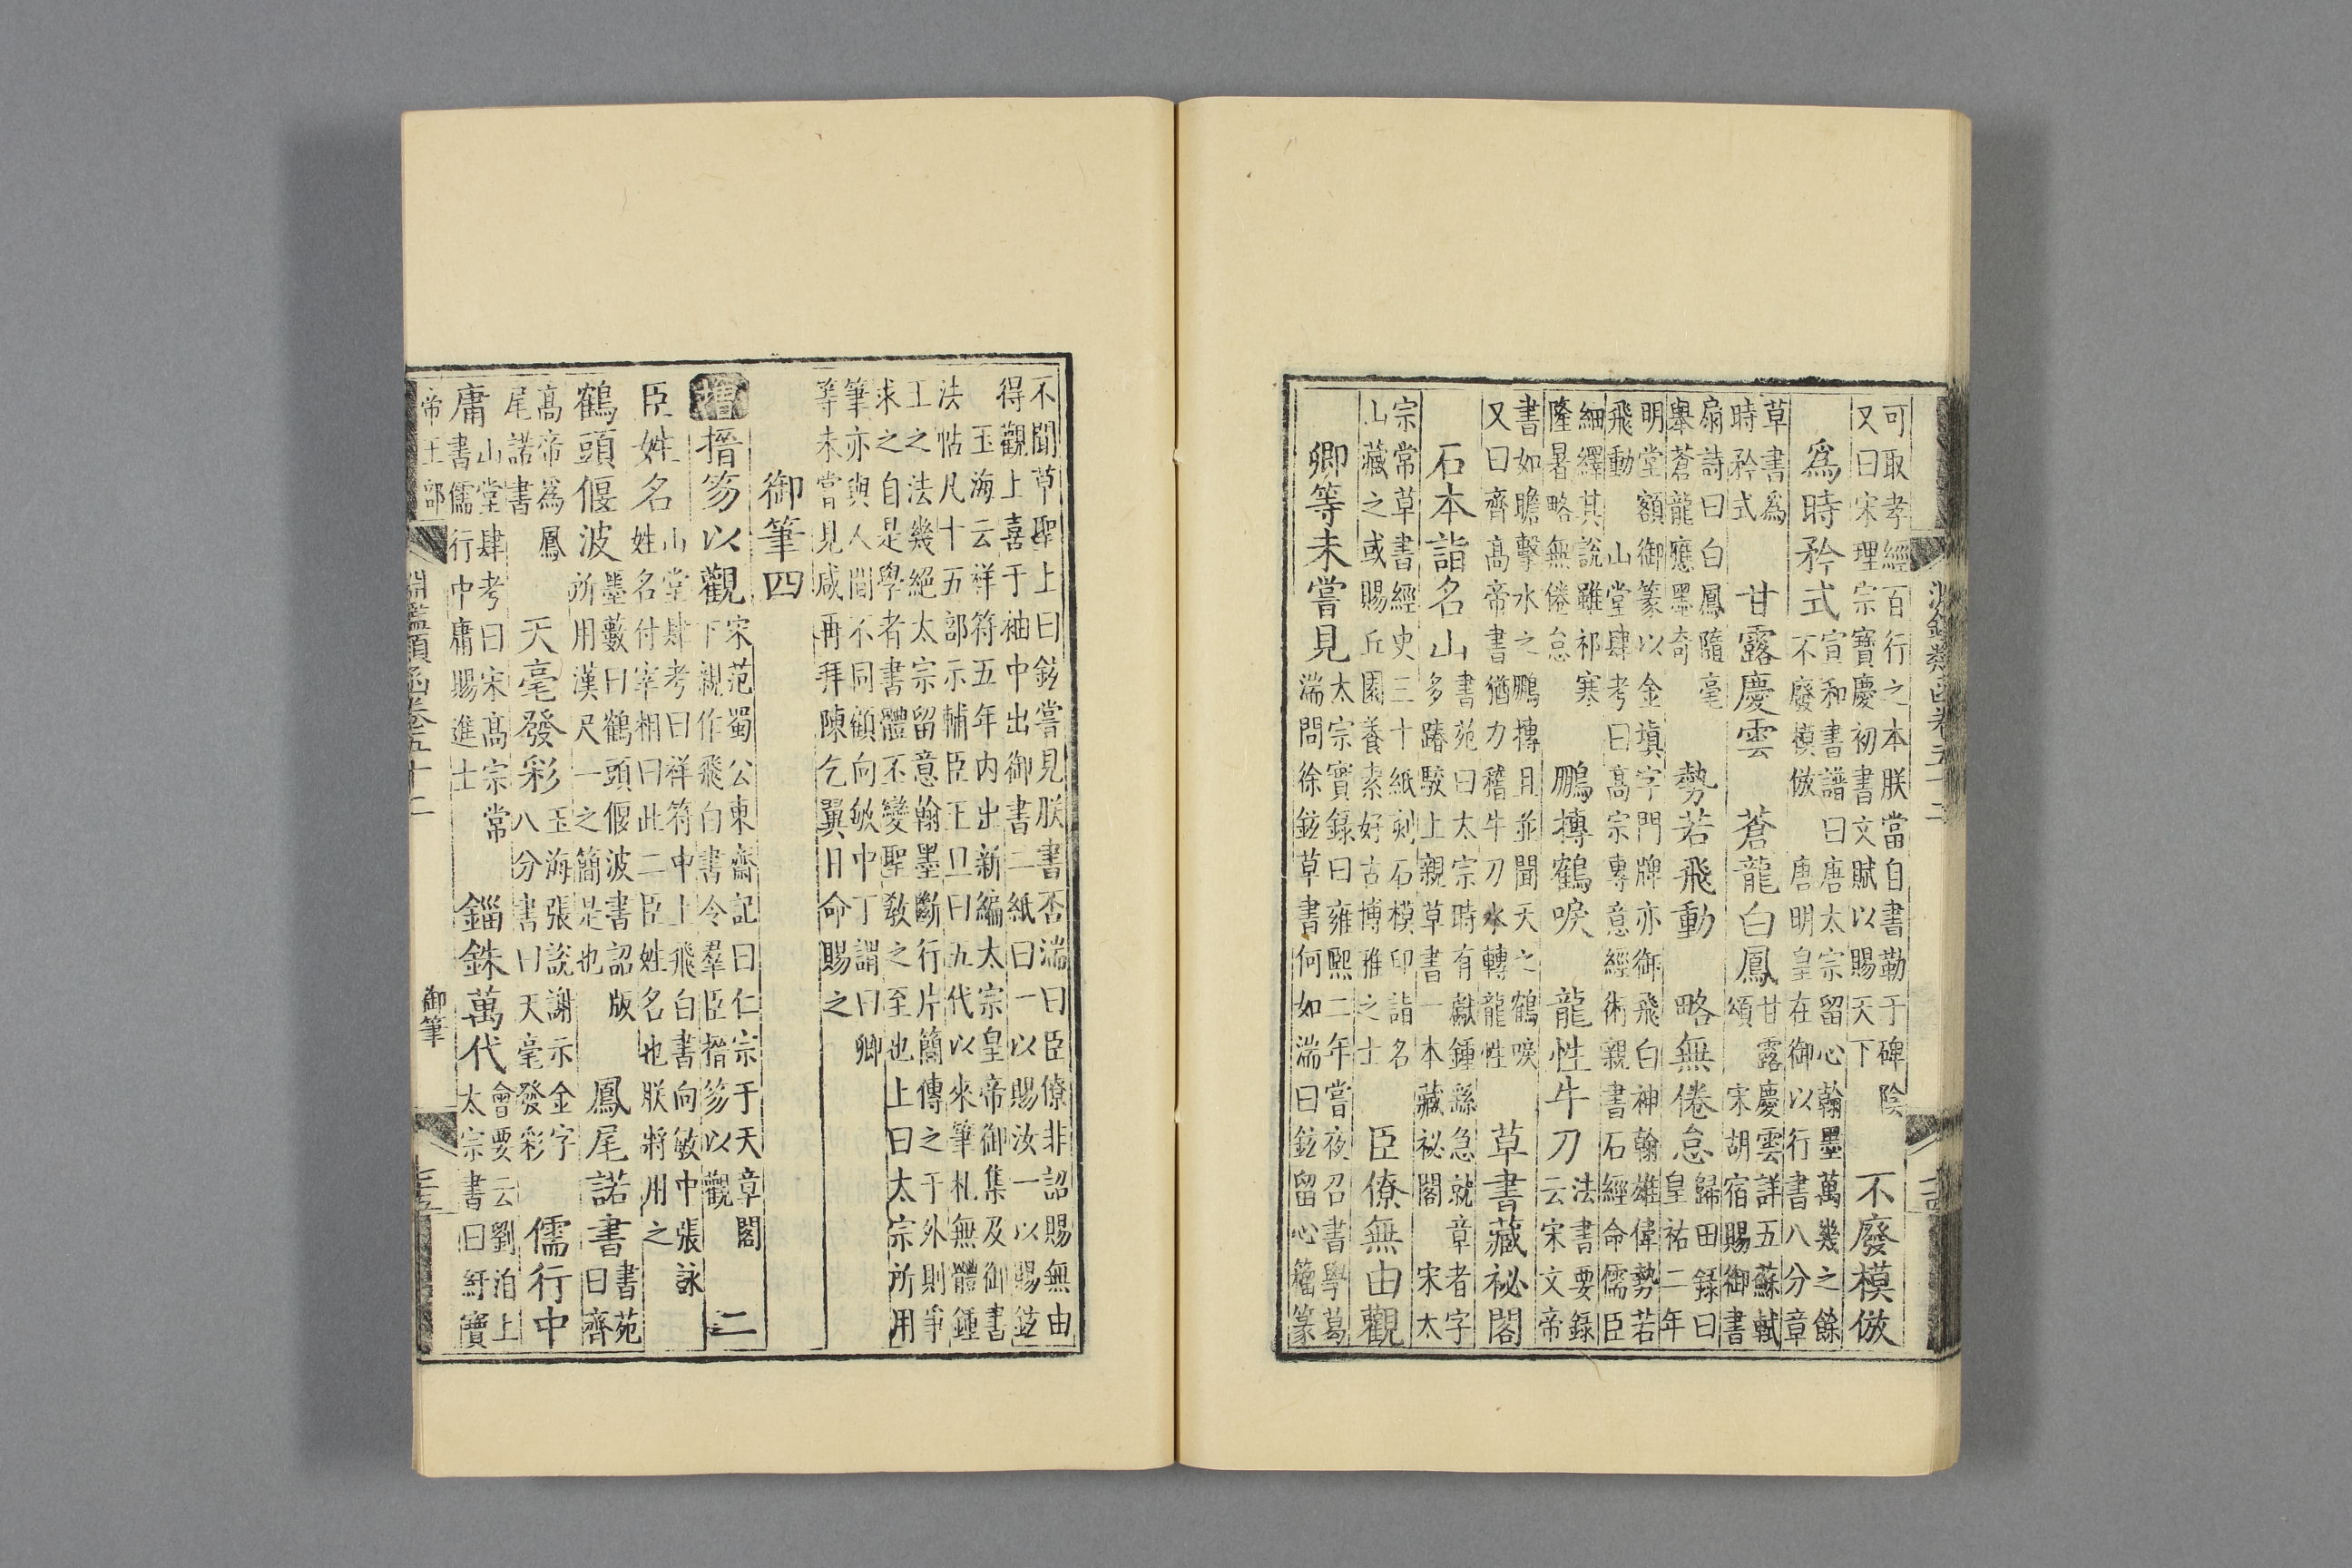 淵鑑類函卷五十二
可取孝經百行之本朕當自書勒于碑陰
又曰宋理宗寶慶初書文賦以賜天下
不廢模倣
爲時矜式
宣和書譜曰唐太宗留心翰墨萬幾之餘
不廢模倣 唐明皇在御以行書八分章
草書爲
時矜式
甘露慶雲 蒼龍白鳳
甘露慶雲詳五蘇軾
頌 宋胡宿賜御書
扇詩曰白鳳隨毫
舉蒼龍應墨奇
勢若飛動 略無倦怠
歸田錄曰
皇祐二年
明堂額御篆以金填字門牌亦御飛白神翰雄偉勢若
飛動 山堂肆考曰高宗專意經術親書石經命儒臣
細繹其說雖祁寒
隆暑略無倦怠
鵬摶鶴唳 龍性牛刀
法書要錄
云宋文帝
書如瞻擊水之鵬摶且並聞天之鶴唳
又曰齊高帝書猶力稽牛刀水轉龍性
草書藏祕閣
石本詣名山
書苑曰太宗時有獻鍾繇急就章者字
多踳駮上親草書一本藏祕閣 宋太
宗常草書經史三十紙刻石模印詣名
山藏之或賜丘園養素好古博雅之士
臣僚無由觀
卿等未嘗見
太宗實錄曰雍熙二年嘗夜召書學葛
湍問徐鉉草書何如湍曰鉉留心籀篆
不聞草聖上曰鉉嘗見朕書否湍曰臣僚非詔賜無由
得觀上喜于袖中出御書二紙曰一以賜汝一以賜鉉
玉海云祥符五年內出新編太宗皇帝御集及御書
法帖凡十五部示輔臣王旦曰五代以來筆札無體鍾
王之法幾絕太宗留意翰墨斷行片簡傳之于外則爭
求之自是學者書體丕變聖敎之至也上曰太宗所用
筆亦與人間不同顧向敏中丁謂曰卿
等未嘗見咸再拜陳乞翼日命賜之
御筆四
增搢笏以觀
宋范蜀公東齋記曰仁宗于天章閣
下親作飛白書令羣臣搢笏以觀
二
臣姓名
山堂肆考曰祥符中上飛白書向敏中張詠
姓名付宰相曰此二臣姓名也朕將用之
鶴頭偃波
墨藪曰鶴頭偃波書詔版
所用漢尺一之簡是也
鳳尾諾書
書苑
曰齊
高帝爲鳳
尾諾書
天毫發彩
玉海張說謝示金字
八分書曰天毫發彩
儒行中
庸書
山堂肆考曰宋高宗常
書儒行中庸賜進士
錙銖萬代
會要云劉洎上
太宗書曰紆寶
帝王部
淵鑑類函卷五十二
御筆